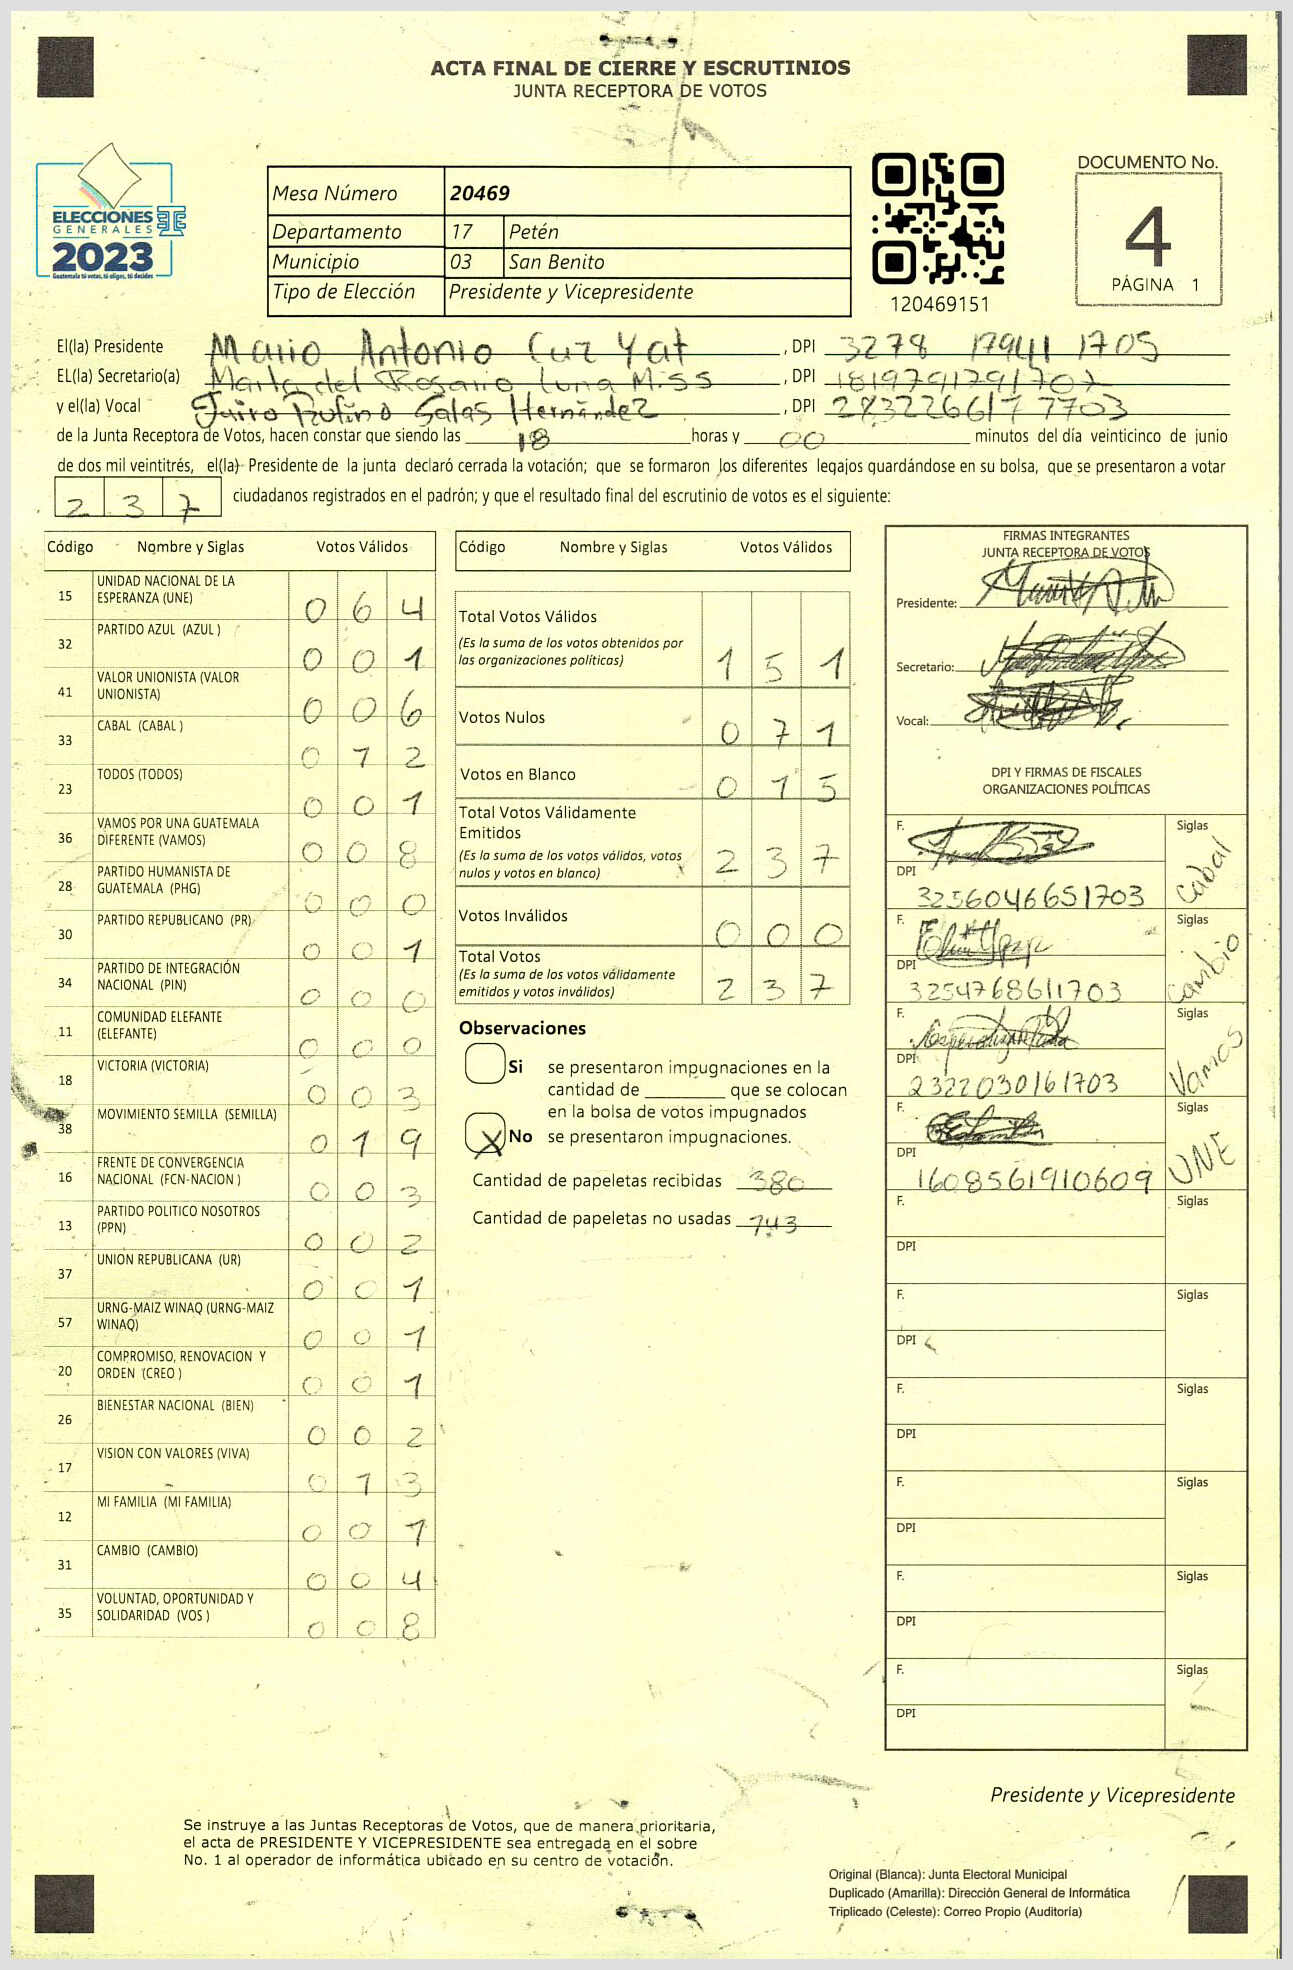 ACTA FINAL DE CIERRE Y ESCRUTINIOS
JUNTA RECEPTORA DE VOTOS
ELECCIONES
GENERALES
2023
Guatemala tú votas, tú eliges, tú decides
Mesa Número 20469
Departamento 17 Petén
Municipio 03 San Benito
Tipo de Elección Presidente y Vicepresidente
120469151
DOCUMENTO No.
4
PÁGINA 1
El(la) Presidente Mario Antonio Cuz Yat, DPI 3278 17941 1705
EL(la) Secretario(a) Marta del Rosario Luna Miss, DPI 1819791791707
y el(la) Vocal Jairo Rufino Salas Hernández, DPI 283226617 7703
de la Junta Receptora de Votos, hacen constar que siendo las 18 horas y 00 minutos del día veinticinco de junio
de dos mil veintitrés, el(la) Presidente de la junta declaró cerrada la votación; que se formaron los diferentes legajos guardándose en su bolsa, que se presentaron a votar
237 ciudadanos registrados en el padrón; y que el resultado final del escrutinio de votos es el siguiente:
Código Nombre y Siglas Votos Válidos
15 UNIDAD NACIONAL DE LA
ESPERANZA (UNE) 064
32 PARTIDO AZUL (AZUL ) 001
41 VALOR UNIONISTA (VALOR
UNIONISTA) 006
33 CABAL (CABAL ) 012
23 TODOS (TODOS) 001
36 VAMOS POR UNA GUATEMALA
DIFERENTE (VAMOS) 008
28 PARTIDO HUMANISTA DE
GUATEMALA (PHG) 000
30 PARTIDO REPUBLICANO (PR) 001
34 PARTIDO DE INTEGRACIÓN
NACIONAL (PIN) 000
11 COMUNIDAD ELEFANTE
(ELEFANTE) 000
18 VICTORIA (VICTORIA) 003
38 MOVIMIENTO SEMILLA (SEMILLA) 019
16 FRENTE DE CONVERGENCIA
NACIONAL (FCN-NACION ) 003
13 PARTIDO POLITICO NOSOTROS
(PPN) 002
37 UNION REPUBLICANA (UR) 001
57 URNG-MAIZ WINAQ (URNG-MAIZ
WINAQ) 001
20 COMPROMISO, RENOVACION Y
ORDEN (CREO ) 001
26 BIENESTAR NACIONAL (BIEN) 002
17 VISION CON VALORES (VIVA) 013
12 MI FAMILIA (MI FAMILIA) 001
31 CAMBIO (CAMBIO) 004
35 VOLUNTAD, OPORTUNIDAD Y
SOLIDARIDAD (VOS ) 008
Código Nombre y Siglas Votos Válidos
Total Votos Válidos
(Es la suma de los votos obtenidos por
las organizaciones políticas) 151
Votos Nulos 071
Votos en Blanco 015
Total Votos Válidamente
Emitidos
(Es la suma de los votos válidos, votos
nulos y votos en blanco) 237
Votos Inválidos 000
Total Votos
(Es la suma de los votos válidamente
emitidos y votos inválidos) 237
Observaciones
Si se presentaron impugnaciones en la
cantidad de ________ que se colocan
en la bolsa de votos impugnados
X No se presentaron impugnaciones.
Cantidad de papeletas recibidas 380
Cantidad de papeletas no usadas 743
FIRMAS INTEGRANTES
JUNTA RECEPTORA DE VOTOS
Presidente:
Secretario:
Vocal:
DPI Y FIRMAS DE FISCALES
ORGANIZACIONES POLÍTICAS
F. Siglas cabal
DPI 3256046651703
F. Siglas cambio
DPI 3254768611703
F. Siglas Vamos
DPI 2322030161703
F. Siglas UNE
DPI 1608561910609
F. Siglas
DPI
F. Siglas
DPI
F. Siglas
DPI
F. Siglas
DPI
F. Siglas
DPI
F. Siglas
DPI
Presidente y Vicepresidente
Se instruye a las Juntas Receptoras de Votos, que de manera prioritaria,
el acta de PRESIDENTE Y VICEPRESIDENTE sea entregada en el sobre
No. 1 al operador de informática ubicado en su centro de votación.
Original (Blanca): Junta Electoral Municipal
Duplicado (Amarilla): Dirección General de Informática
Triplicado (Celeste): Correo Propio (Auditoría)